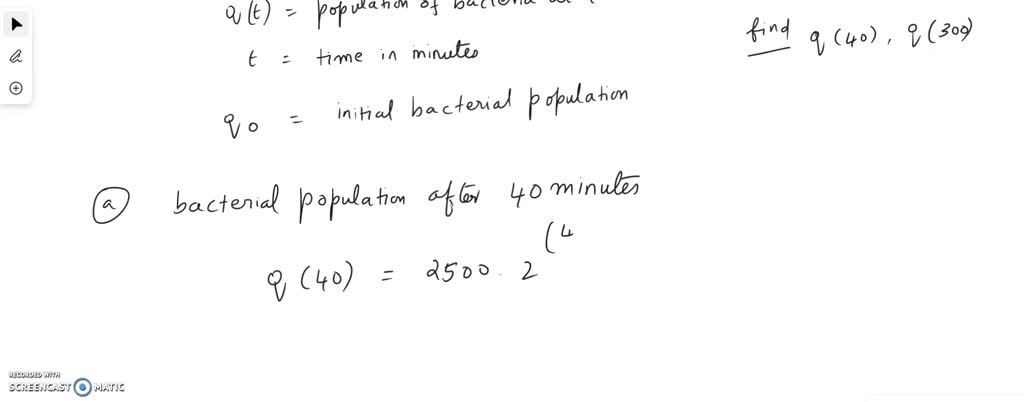 q(t) = population of bacteria
t = time in minutes
q0 = initial bacterial population
find q(40), q(300)
a bacterial population after 40 minutes
q(40) = 2500. 2^(4
RECORDED WITH
SCREENCAST MATIC